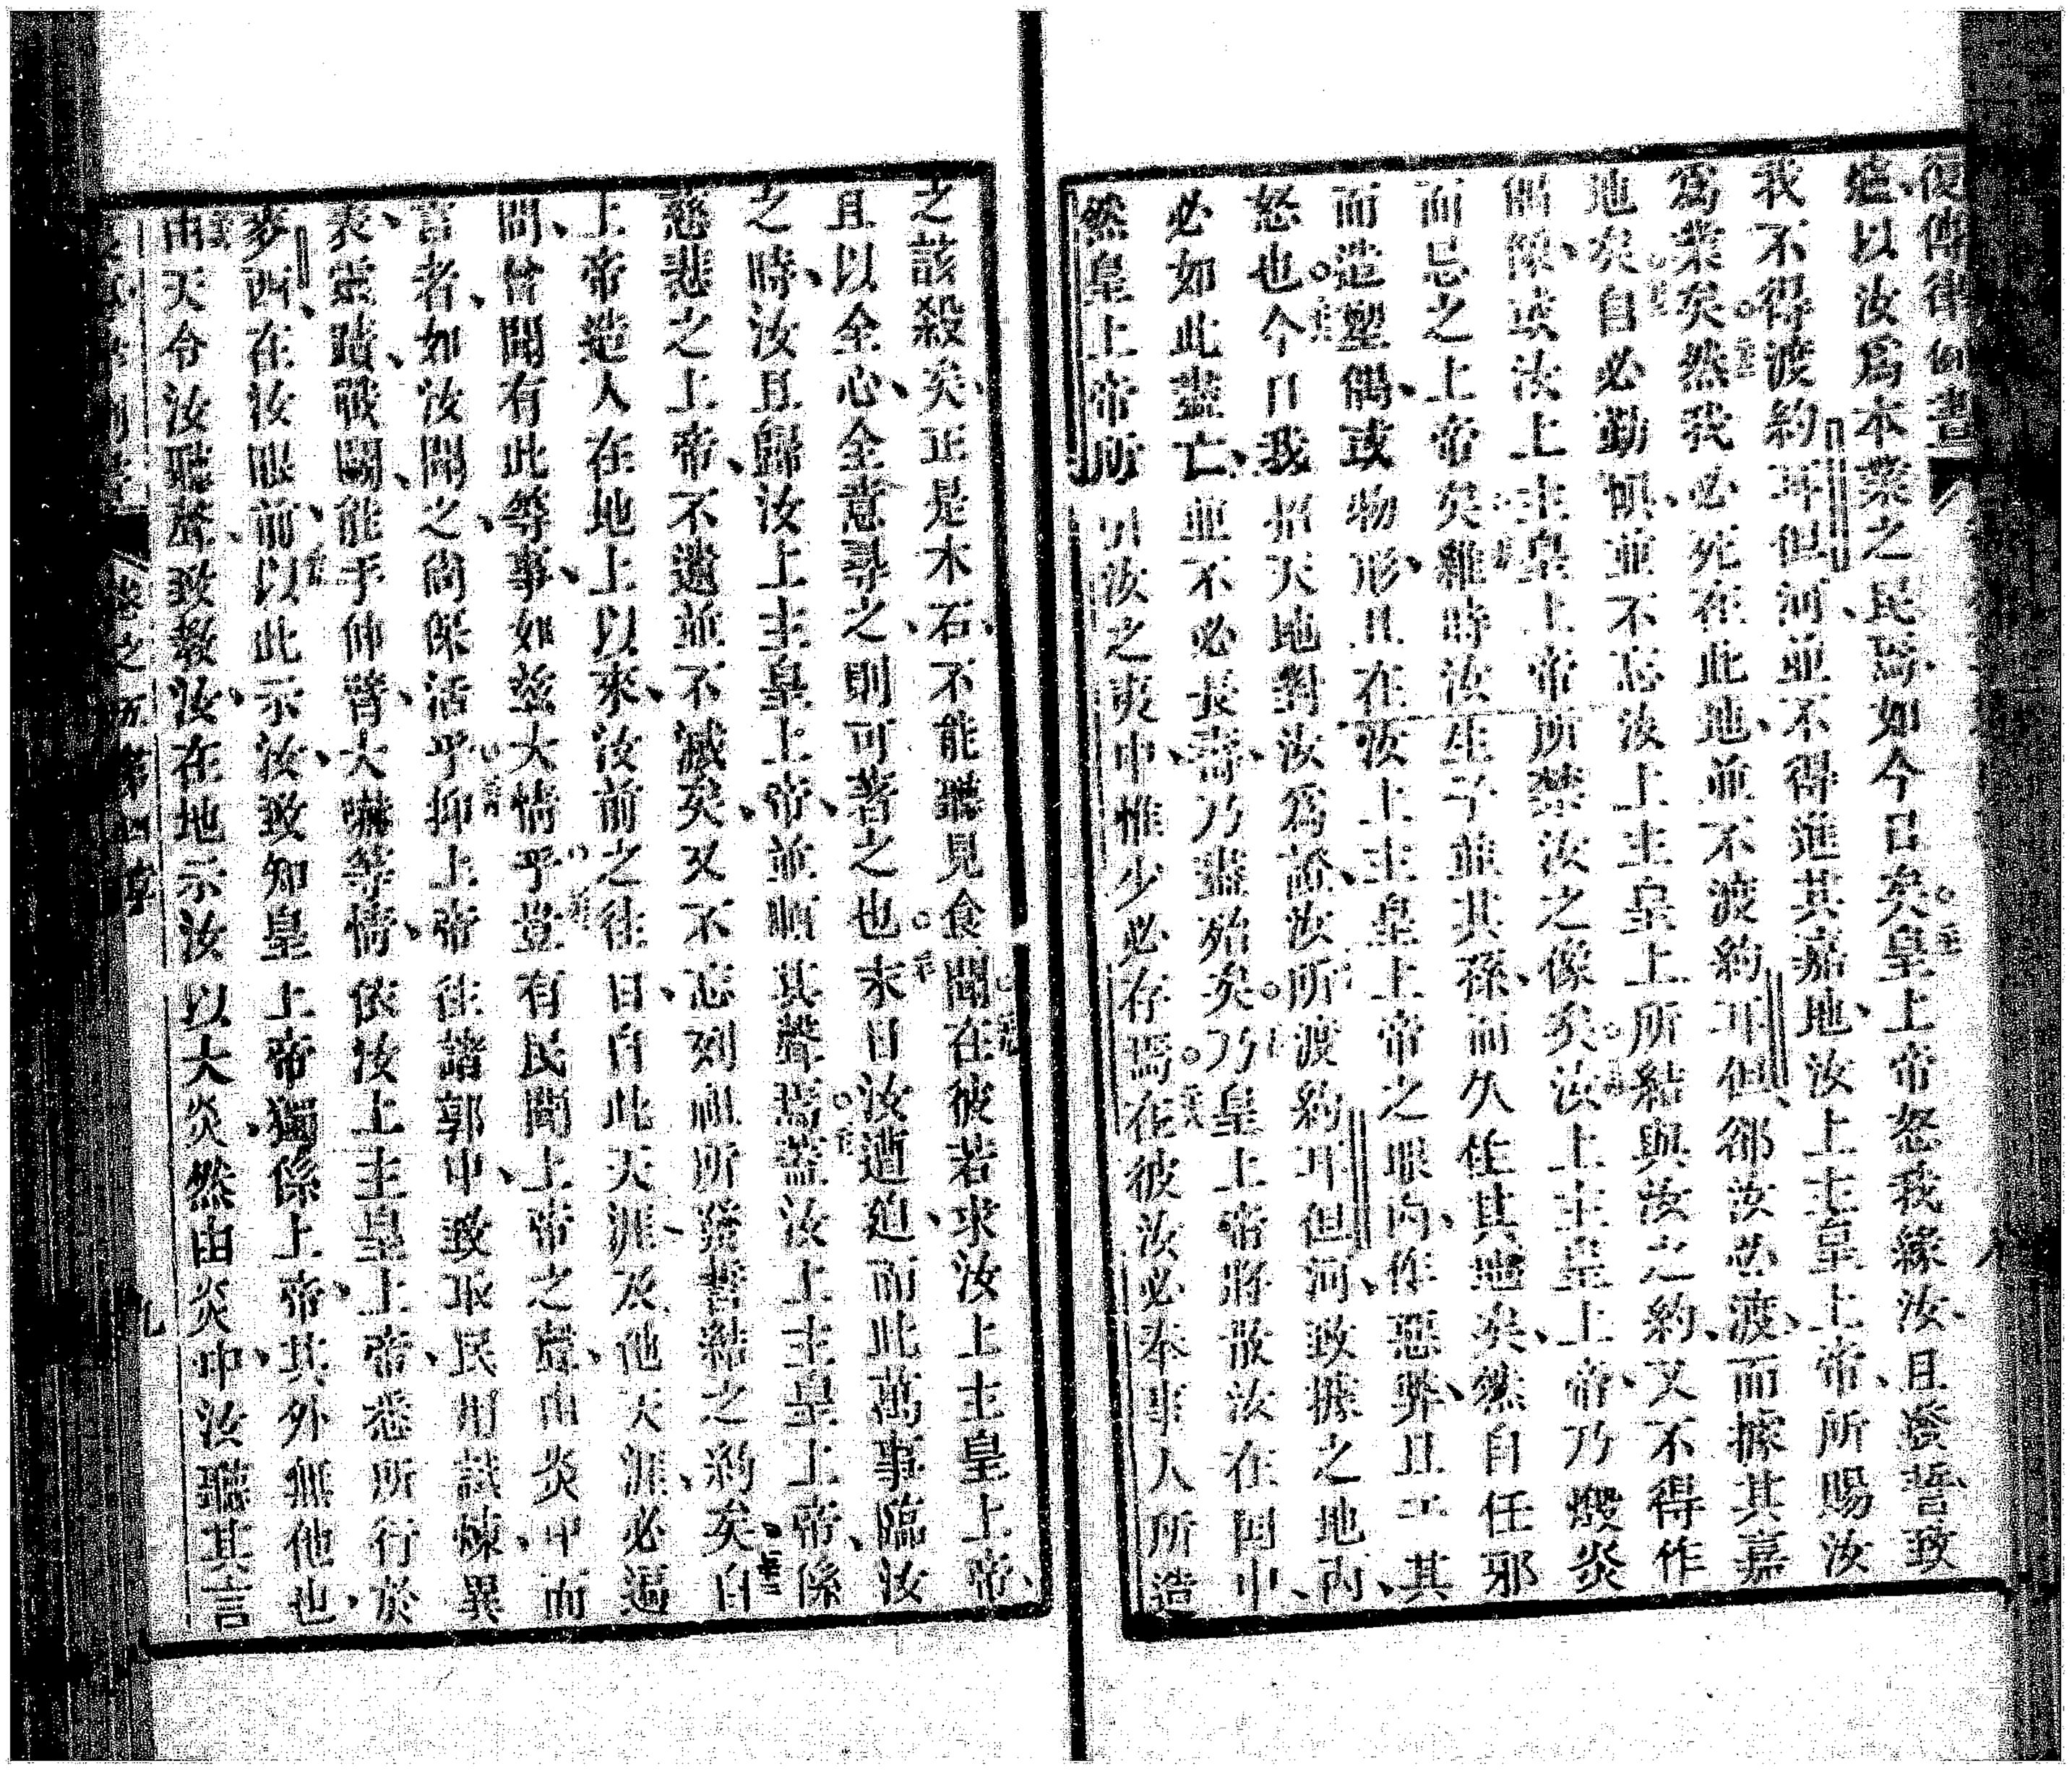 復傳律例書
爐、以汝爲本業之民焉、如今日矣皇上帝怒我緣汝、且發誓致
我不得渡約耳但河、並不得進其嘉地、汝上主皇上帝、所賜汝
爲業矣然我必死在此地、並不渡約耳但、鄉汝必渡、而據其嘉
地矣自必勤慎、並不忘汝上主皇上所結與汝之約、又不得作
偶像、或汝上主皇上帝所禁汝之像矣汝上主皇上帝、乃燬炎
而忌之上帝矣雖時汝生子並其孫、而久住其地矣、然自任邪
而造塑偶、或物形、且在汝上主皇上帝之眼內、作惡弊、且干其
怒也今日我招天地對汝爲證、汝所渡約耳但河、致據之地內、
必如此盡亡、並不必長壽、乃盡殆矣乃皇上帝將散汝在囯中、
然皇上帝所引汝之夷中、惟少必存焉在彼汝必奉事人所造
之該殺矣、正是木石、不能聽見食聞在彼若求汝上主皇上帝、
且以全心、全意尋之、則可著之也末日汝遭廹、而此萬事臨汝
之時、汝且歸汝上主皇上帝、並順其聲焉蓋汝上主皇上帝、係
慈悲之上帝、不遺並不滅矣、又不忘列祖所發誓結之約矣自
上帝造人在地上以來、汝前之往日、自此天涯、及他天涯、必逼
問、曾聞有此等事、如玆大情乎豈有民聞上帝之聲、由炎中而
言者、如汝聞之、尚保活乎抑上帝往諸郭中、致取民用試煉、異
表、靈蹟、戰鬬、能手伸臂、大嚇等情、依汝上主皇上帝、悉所行於
麥西、在汝眼前、以此示汝、致知皇上帝獨係上帝、其外無他也、
由天令汝聽聲、致教汝、在地示汝以大炎、然由炎中、汝聽其言
卷之五 第四章 九